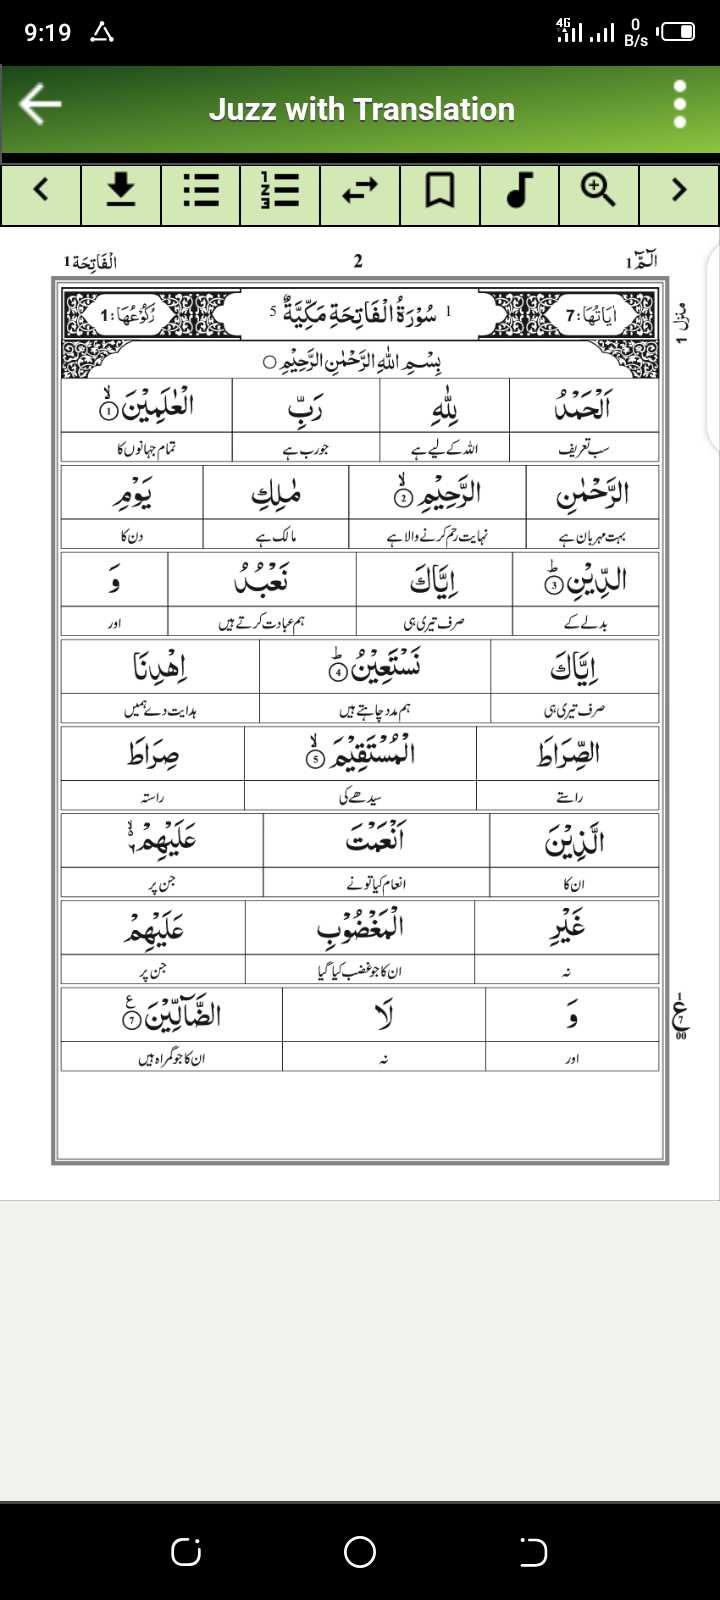 9:19 4G 0 B/s
Juzz with Translation
الٓمّٓ 1 2 الْفَاتِحَة 1
منزل 1
اٰیَاتُهَا: 7 1 سُوْرَۃُ الْفَاتِحَةِ مَكِّيَّةٌ 5 رُكُوْعُهَا: 1
بِسْمِ اللّٰهِ الرَّحْمٰنِ الرَّحِيْمِ ○
اَلْحَمْدُ لِلّٰهِ رَبِّ الْعٰلَمِيْنَ ۙ 1
سب تعریف اللہ کے لیے ہے جو رب ہے تمام جہانوں کا
الرَّحْمٰنِ الرَّحِيْمِ ۙ 2 مٰلِكِ يَوْمِ
بہت مہربان ہے نہایت رحم کرنے والا ہے مالک ہے دن کا
الدِّيْنِ ؕ 3 اِيَّاكَ نَعْبُدُ وَ
بدلے کے صرف تیری ہی ہم عبادت کرتے ہیں اور
اِيَّاكَ نَسْتَعِيْنُ ؕ 4 اِهْدِنَا
صرف تیری ہی ہم مدد چاہتے ہیں ہدایت دے ہمیں
الصِّرَاطَ الْمُسْتَقِيْمَ ۙ 5 صِرَاطَ
راستے سیدھے کی راستہ
الَّذِيْنَ اَنْعَمْتَ عَلَيْهِمْ ۙ ۶
ان کا انعام کیا تو نے جن پر
غَيْرِ الْمَغْضُوْبِ عَلَيْهِمْ
نہ ان کا جو غضب کیا گیا جن پر
وَ لَا الضَّآلِّيْنَ ع 7
اور نہ ان کا جو گمراہ ہیں
1 ع 7 00